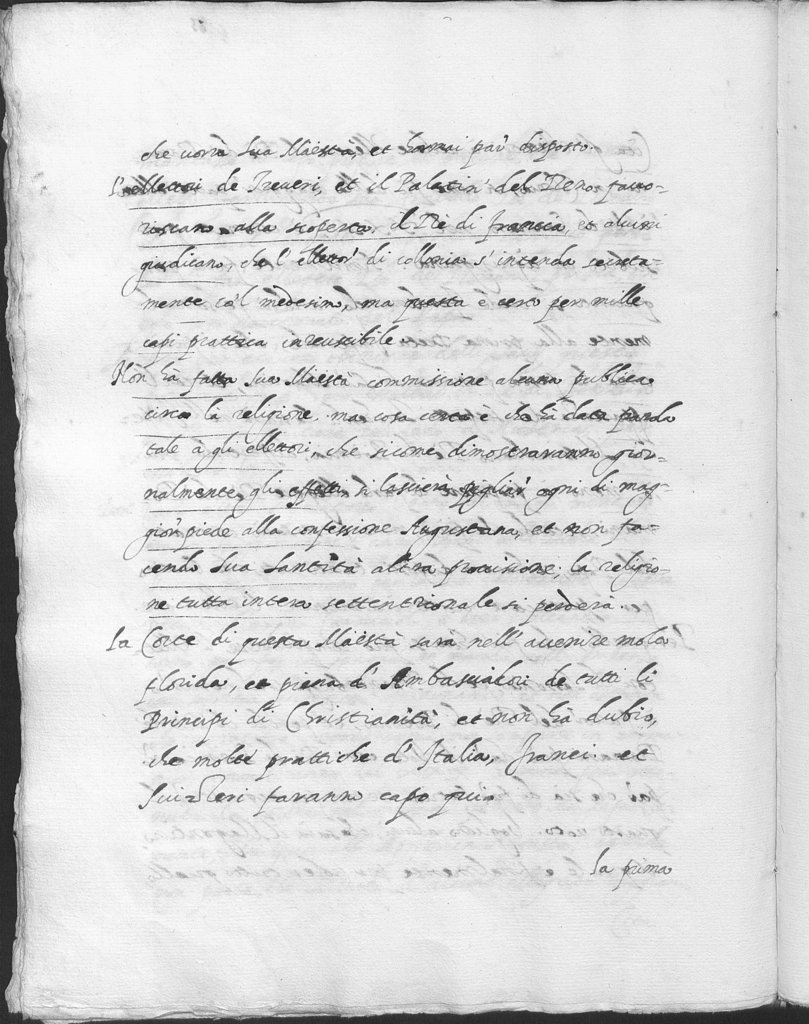 che vorrà Sua Maestà, et hormai par' disposto.
L'ellettori de Treveri, et il Palatin' del Reno favo-
riscano alla scoperta, il Rè di francia, et alcuni
giudicano, che l'ellettor' di Collonia s'intenda secreta-
mente co'l medesimo, ma questa è certo per mille
capi prattica inreuscibile.
Non hà fatta Sua Maestà commissione alcuna publica
circa la religione, ma cosa certa è che hà data parola
tale à gli ellettori, che sicome dimostraranno gior-
nalmente gli effetti, si lascierà pigliar' ogni dì mag-
gior' piede alla confessione Augustana, et non fa-
cendo Sua Santità altra provisione, la religio-
ne tutta intera settentrionale si perderà.
La Corte di questa Maestà sarà nell'avenire molto
florida, et piena d'Ambasciatori de tutti li
Principi di Christianità, et non hà dubio,
che molte prattiche d'Italia, franci. et
Suizzeri faranno capo qui.
La prima